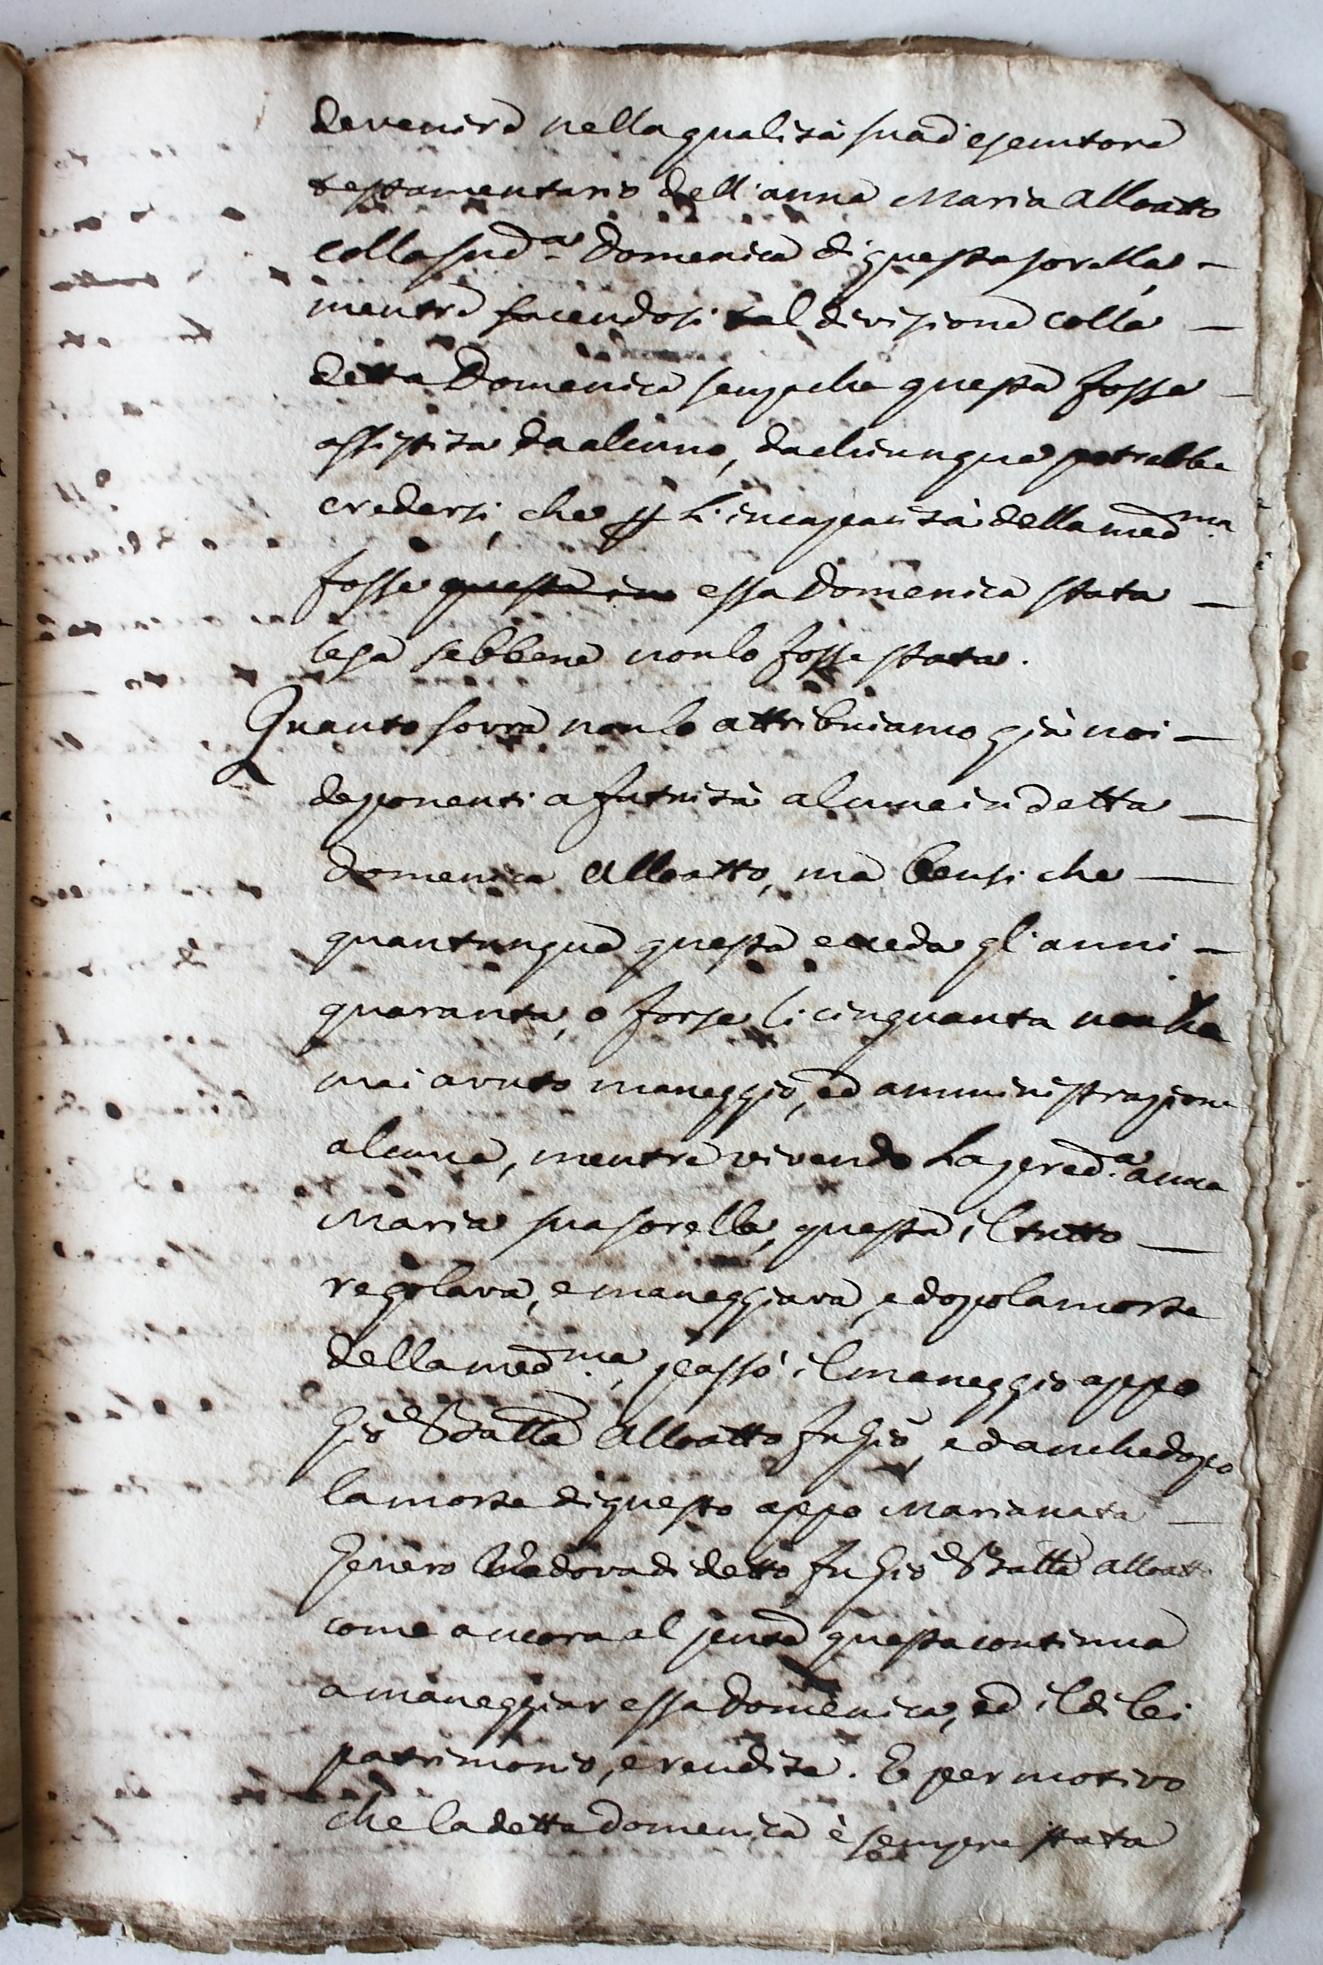 devenire nella qualità sua d'esecutore
testamentario dell'anna Maria Alloatto
colla sud.a Domenica di questa sorella, —
mentre facendosi tal divisione colla —
detta Domenica senza che questa fosse —
assistita da alcuno, da chiunque potrebbe
credersi, che per L'incapacità della med.ma
fosse questa in essa Domenica stata —
lesa sebbene non lo fosse stata.
Quanto sovra non lo attribuiamo già noi —
deponenti a fatuità alcuna in detta —
domenica Alloatto, ma bensi che —
quantunque questa exceda gl'anni —
quaranta, o forse li cinquanta non ha
mai avuto maneggio, ed amministrazione
alcuna, mentre vivendo La pred.a anna
Maria sua sorella, questa il tutto —
regolava, e maneggiava, e dopo la morte
della med.ma, passò il maneggio appo
Gio Batta Alloatto fu Gio, ed anche dopo
la morte di questo appo Maria nata —
Genero Vedova di detto fu Gio Batta Alloatto
come ancora al pente questa continua
a maneggiar essa Domenica, ed il di lei
patrimonio, e rendite. E per motivo
che la detta Domenica è sempre stata